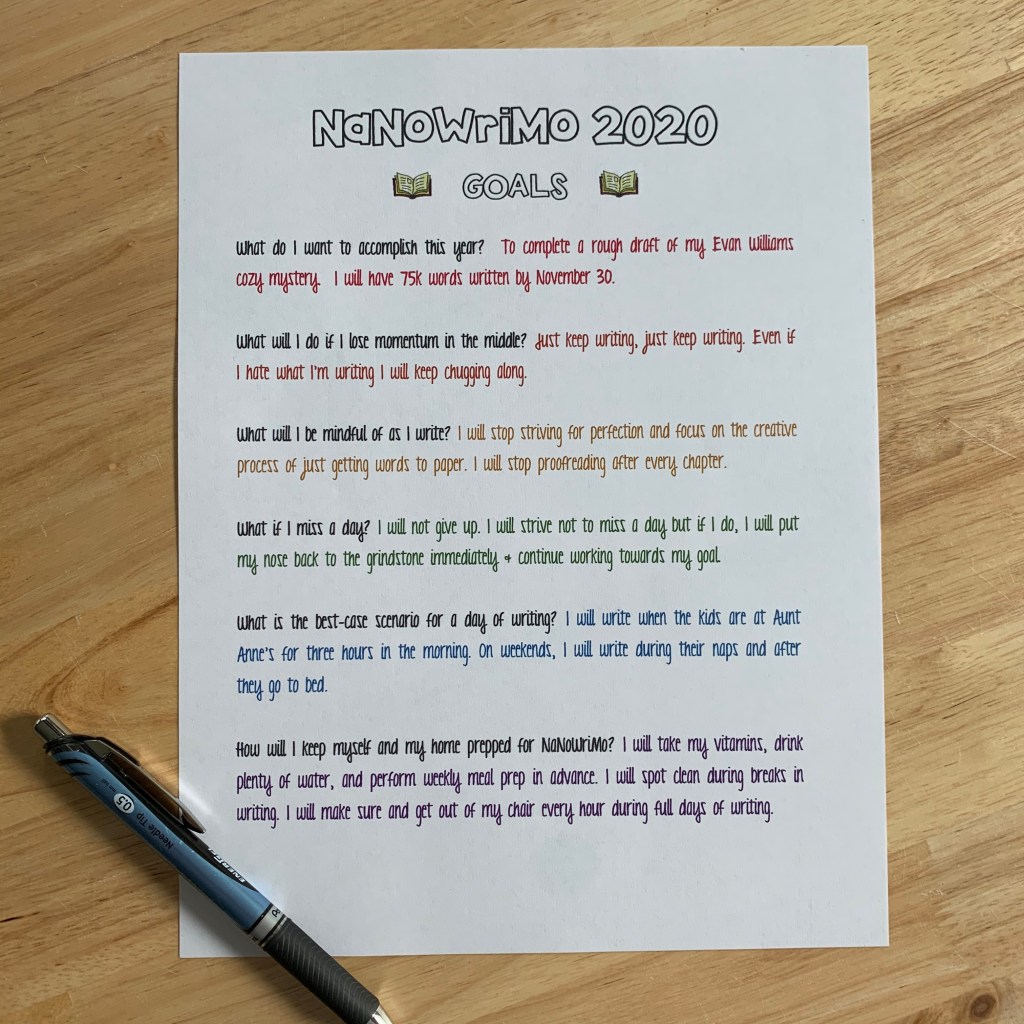 NaNoWriMo 2020
GOALS
What do I want to accomplish this year? To complete a rough draft of my Evan Williams
cozy mystery. I will have 75k words written by November 30.
What will I do if I lose momentum in the middle? Just keep writing, just keep writing. Even if
I hate what I'm writing I will keep chugging along.
What will I be mindful of as I write? I will stop striving for perfection and focus on the creative
process of just getting words to paper. I will stop proofreading after every chapter.
What if I miss a day? I will not give up. I will strive not to miss a day but if I do, I will put
my nose back to the grindstone immediately + continue working towards my goal.
What is the best-case scenario for a day of writing? I will write when the kids are at Aunt
Anne's for three hours in the morning. On weekends, I will write during their naps and after
they go to bed.
How will I keep myself and my home prepped for NaNoWriMo? I will take my vitamins, drink
plenty of water, and perform weekly meal prep in advance. I will spot clean during breaks in
writing. I will make sure and get out of my chair every hour during full days of writing.
0.5
Needle Tip
ENERGEL